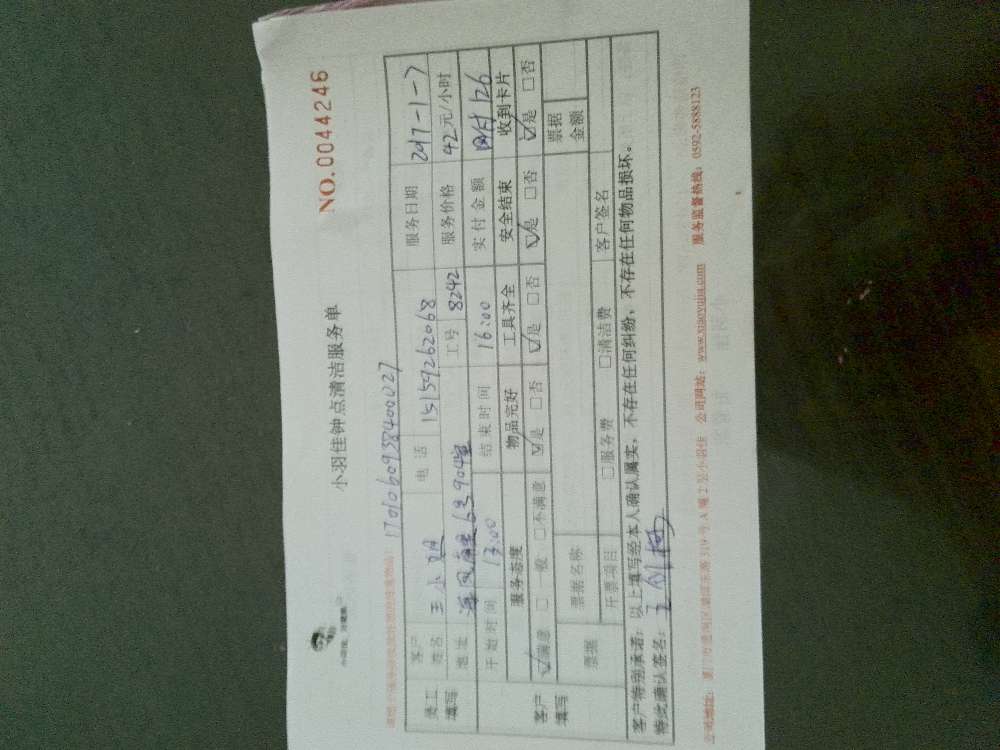 NO.0044246
小羽佳钟点清洁服务单
17010609384000027
员工填写 客户姓名 王小姐 电话 15159262068 服务日期 2017-1-7
地址 6号904室 工号 8242 服务价格 42元/小时
开始时间 13:00 结束时间 16:00 实付金额 网付126
客户填写 服务态度 物品完好 工具齐全 安全结束 收到卡片
☑满意 □一般 □不满意 ☑是 □否 ☑是 □否 ☑是 □否 ☑是 □否
票据 票据名称 票据金额
开票项目 □服务费 □清洁费 客户签名
客户特别承诺：以上填写经本人确认属实，不存在任何纠纷，不存在任何物品损坏。
特此确认签名：
公司地址： 公司网站：www.xiaoyujia.com 服务监督热线：0592-5888123